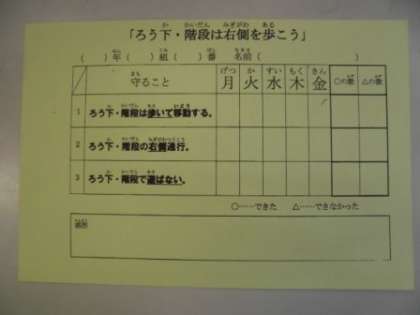 「ろう下・階段は右側を歩こう」
(　)年(　)組(　)番 名前(　)
守ること 月 火 水 木 金 ○の数 △の数
1 ろう下・階段は歩いて移動する。
2 ろう下・階段の右側通行。
3 ろう下・階段で遊ばない。
○……できた △……できなかった